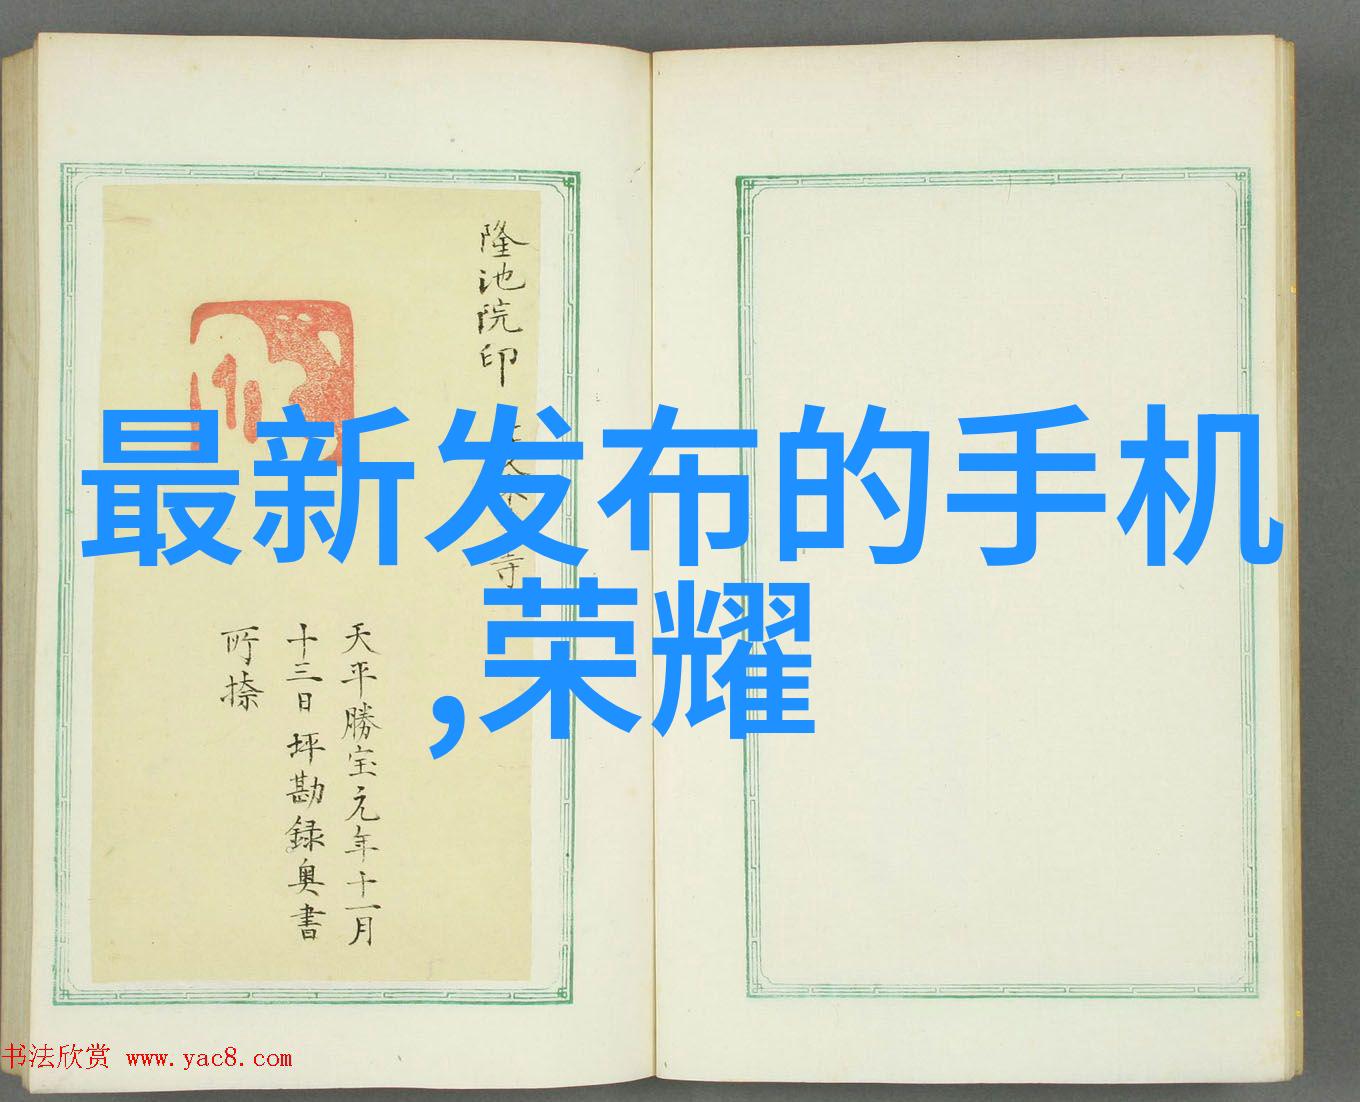 隆池院印
寺
天平勝宝元年十一月
十三日坪勘録奥書
所捺
最新发布的手机
,荣耀
书法欣赏 www.yac8.com